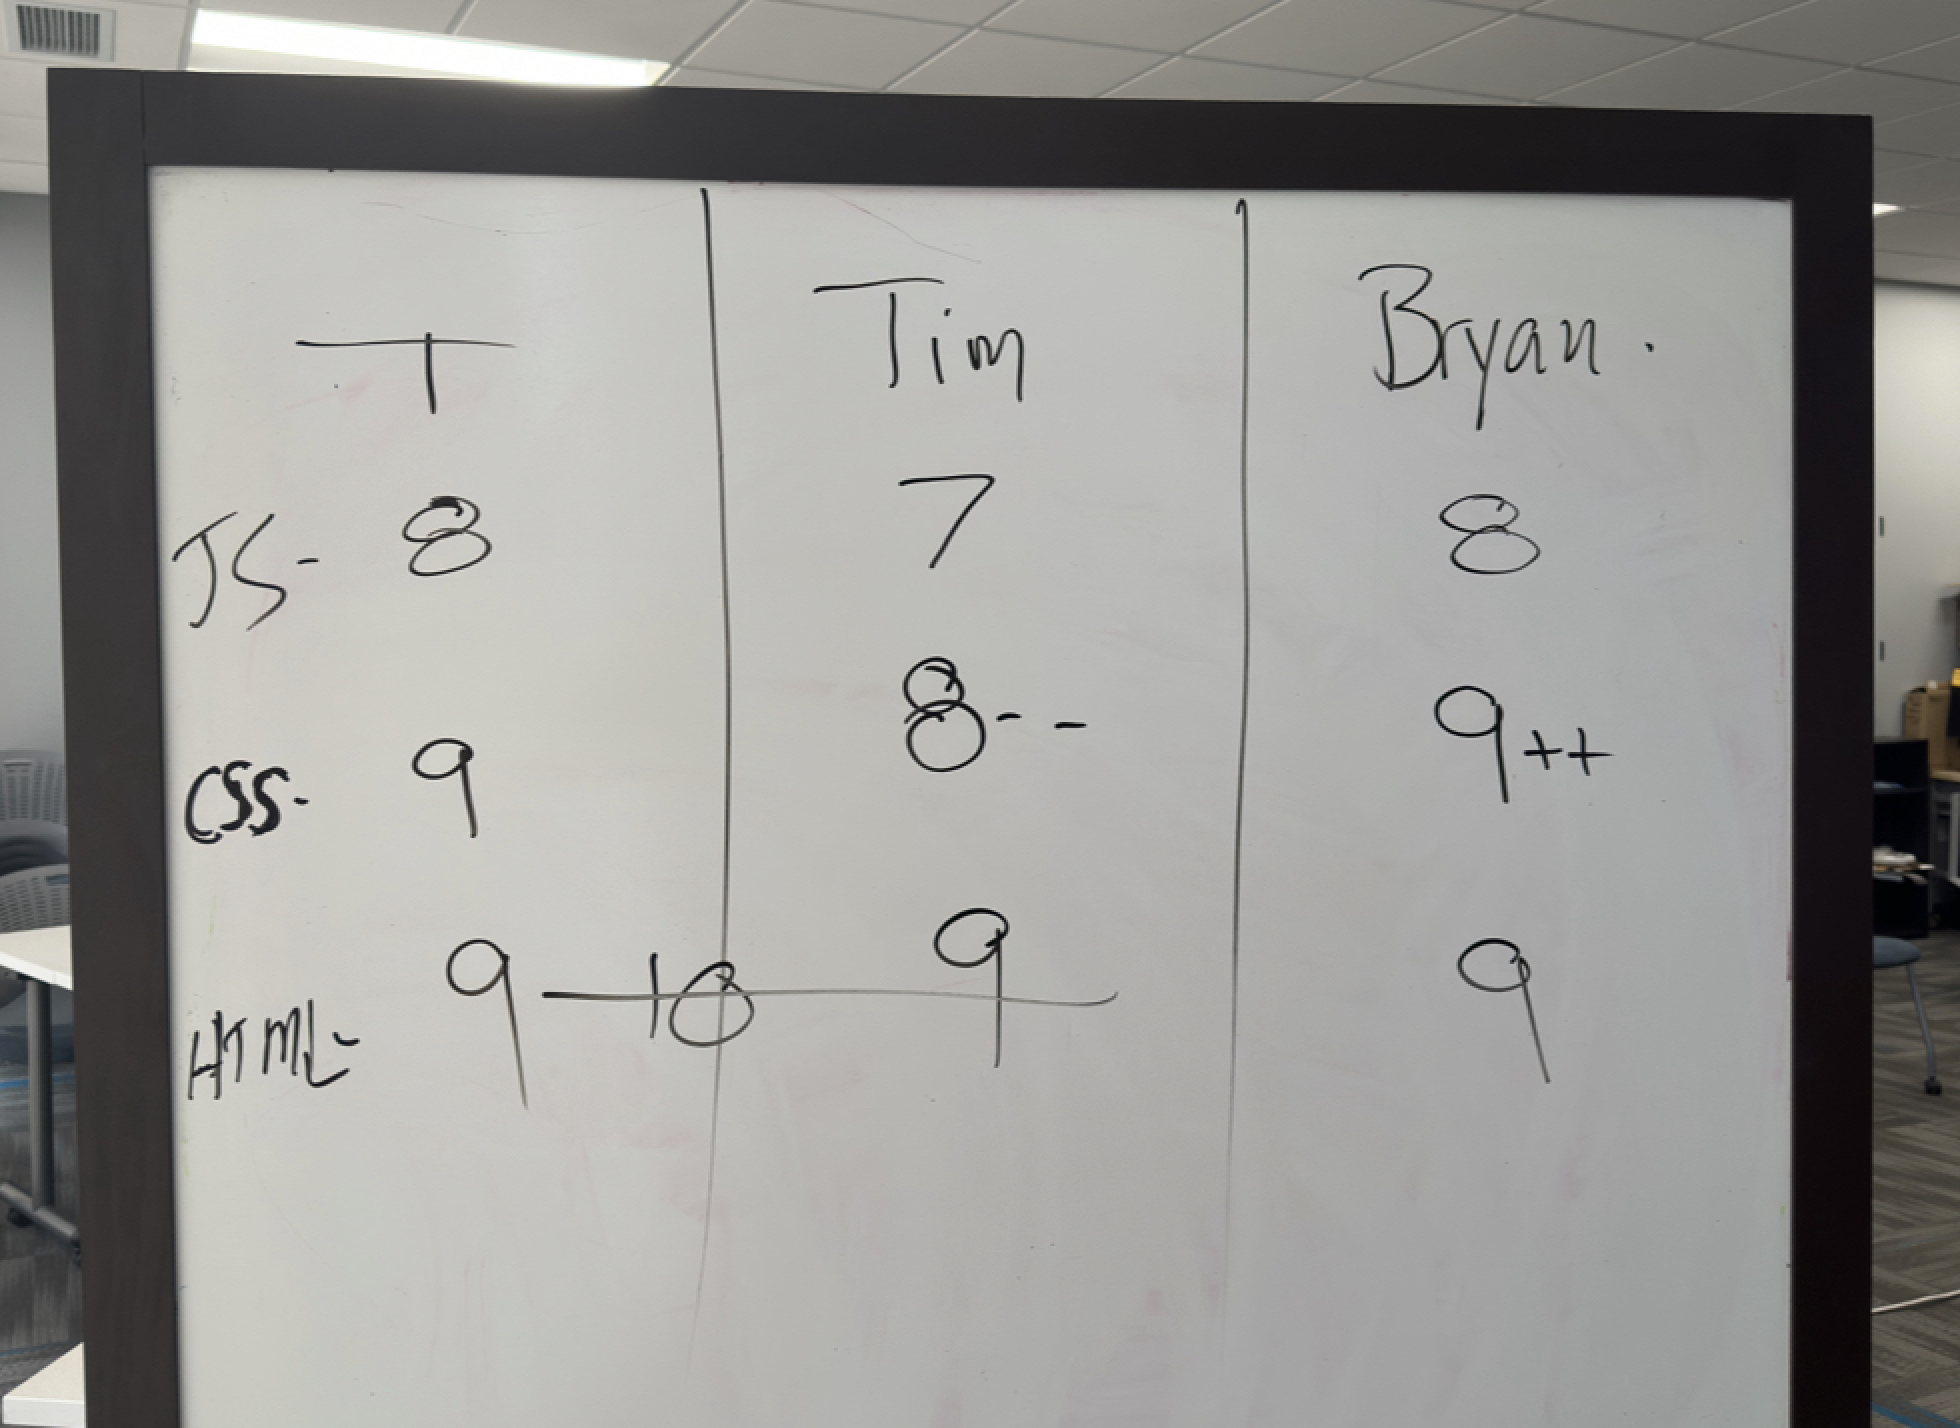 T Tim Bryan.
JS- 8 7 8
CSS- 9 8-- 9++
HTML- 9-10 9 9